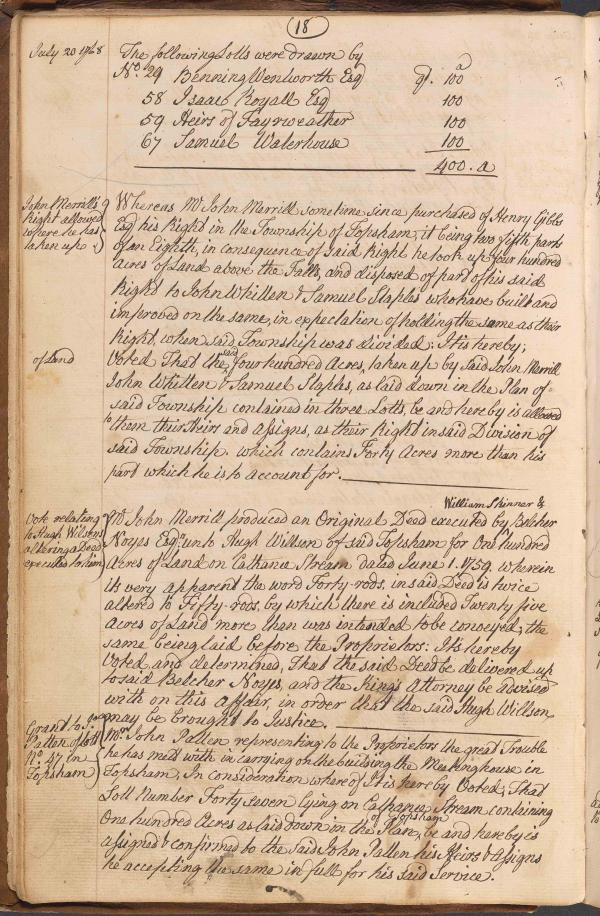 18
July 20 1768
The following Lotts were drawn by
No. 29 Benning Wenworth Esq qt. 100 a
58 Isaac Royall Esq 100
59 Heirs of Fayrweather 100
67 Samuel Waterhouse 100
400. a
John Merrill's
Right allowed
where he has
taken up
of Land
Whereas Mr John Merrill sometime since purchased of Henry Gibbs
Esq his Right in the Township of Topsham, it being two fifth parts
of an Eighth, in consequence of said Right he took up four hundred
Acres of Land above the Falls, and disposed of part of his said
Right to John Whitten & Samuel Staples who have built and
improved on the same, in expectation of holding the same as their
Right, when said Township was divided; It is hereby;
Voted That the said four hundred Acres, taken up by said John Merrill
John Whitten & Samuel Staples, as laid down in the Plan of
said Township contained in three Lotts, be and hereby is allowed
to them their Heirs and assigns, as their Right in said Division of
said Township. which contains Forty Acres more than his
part which he is to account for.
Vote relating
to Hugh Wilson's
altering a Deed
executed for him
William Skinner &
Mr John Merrill produced an Original Deed executed by Belcher
Noyes Esqrs unto Hugh Willson of said Topsham for One hundred
Acres of Land on Cathance Stream dated June 1. 1759. wherein
its very apparent the word Forty-rods, in said Deed is twice
altered to Fifty-rods, by which there is included Twenty five
Acres of Land more than was intended to be conveyed; the
same being laid before the Proprietors: It's hereby
Voted, and determined, That the said Deed be delivered up
to said Belcher Noyes, and the King's Attorney be advised
with on this affair, in order that the said Hugh Willson
may be brought to Justice.
Grant to Jno
Patten of Lott
No. 47 in
Topsham
Mr. John Patten representing to the Proprietors the great Trouble
he has met with in carrying on the building the Meetinghouse in
Topsham, In consideration whereof It is hereby Voted, That
Lott Number Forty seven lying on Cathance Stream containing
One hundred Acres as laid down in the Plan of Topsham, be and hereby is
assigned & confirmed to the said John Patten his Heirs & Assigns
he accepting the same in full for his said Service.